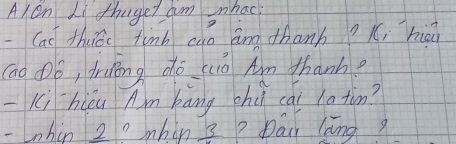 Alen Li thuyet âm nhac:
- Các thuộc tính của âm thanh? Kí hiệu
Cao Độ, trường độ của Âm thanh?
- Kí hiệu Âm bằng chữ cái la tin?
- nhịp 2? nhịp 3? Dấu lặng?